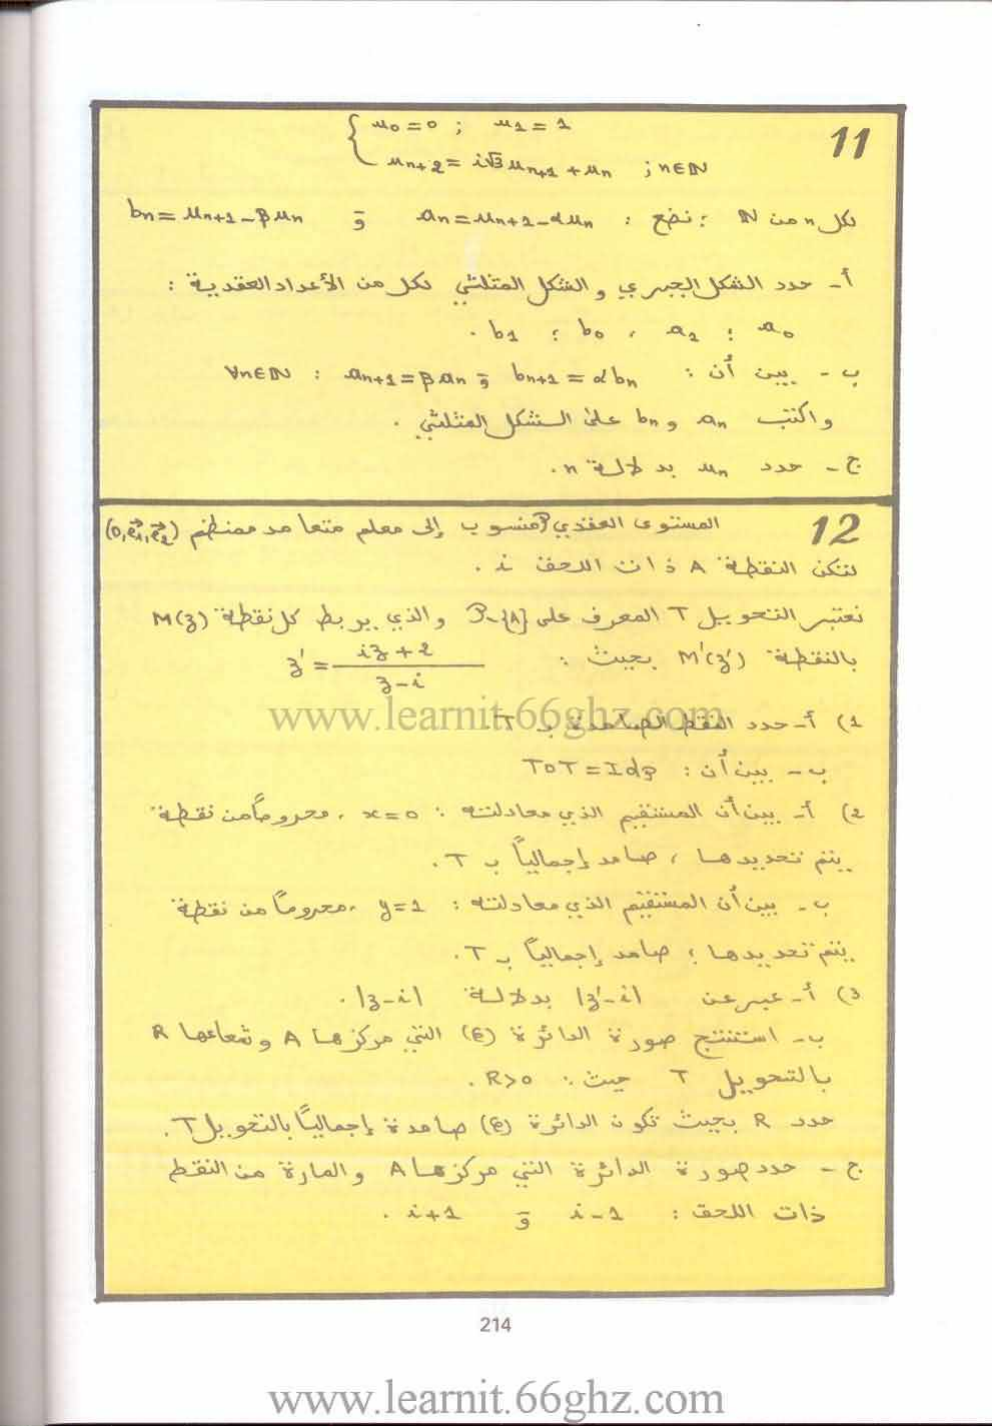 11
u₀ = 0 ; u₁ = 1
uₙ₊₂ = i√3 uₙ₊₁ + uₙ ; n∈ℕ
لكل n من ℕ ؛ نضع : aₙ = uₙ₊₁ - αuₙ و bₙ = uₙ₊₁ - βuₙ
أ - حدد الشكل الجبري و الشكل المثلثي لكل من الأعداد العقدية :
a₀ ؛ a₁ ، b₀ ؛ b₁ .
ب - بين أن : bₙ₊₁ = αbₙ و aₙ₊₁ = βaₙ : ∀n∈ℕ
واكتب aₙ و bₙ على الشكل المثلثي .
ج - حدد uₙ بدلالة n .
12
المستوى العقدي P منسوب إلى معلم متعامد ممنظم (O, e₁⃗, e₂⃗)
لتكن النقطة A ذات اللحق i .
نعتبر التحويل T المعرف على P-{A} والذي يربط كل نقطة M(z)
بالنقطة M'(z') بحيث : z' = (iz + 2)/(z - i)
1) أ - حدد النقط الصامدة ب T .
ب - بين أن : T∘T = Id_P
2) أ - بين أن المستقيم الذي معادلته : x=0 ، محروماً من نقطة
يتم تحديدها ، صامد إجمالياً ب T .
ب - بين أن المستقيم الذي معادلته : y=1 ، محروماً من نقطة
يتم تحديدها ؛ صامد إجمالياً ب T .
3) أ - عبر عن |z'-i| بدلالة |z-i| .
ب - استنتج صورة الدائرة (C) التي مركزها A وشعاعها R
بالتحويل T حيث : R>0 .
حدد R بحيث تكون الدائرة (C) صامدة إجمالياً بالتحويل T .
ج - حدد صورة الدائرة التي مركزها A والمارة من النقط
ذات اللحق : i-1 و i+1 .
www.learnit.66ghz.com
214
www.learnit.66ghz.com